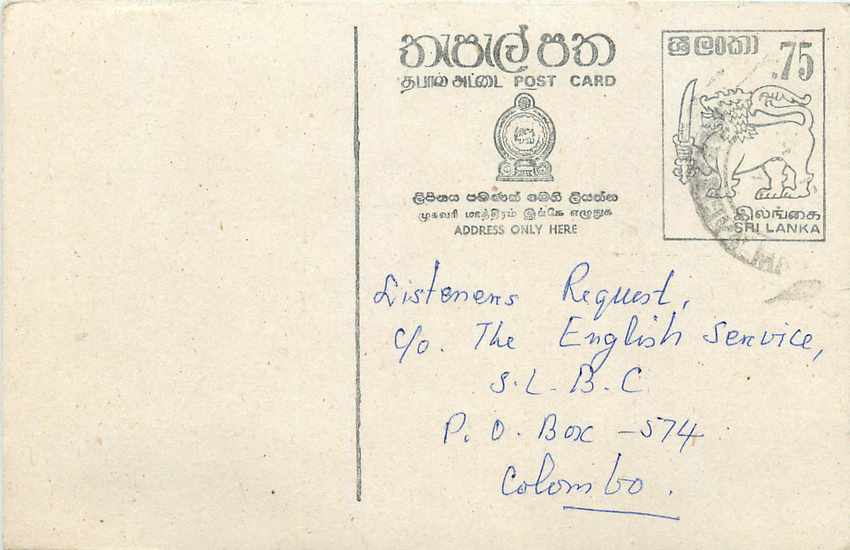 තැපැල් පත
தபால் அட்டை POST CARD
ලිපිනය පමණක් මෙහි ලියන්න
முகவரி மாத்திரம் இங்கே எழுதுக
ADDRESS ONLY HERE
ශ්‍රී ලංකා
.75
இலங்கை
SRI LANKA
Listeners Request,
c/o. The English Service,
S. L. B. C
P. O. Box - 574
Colombo.